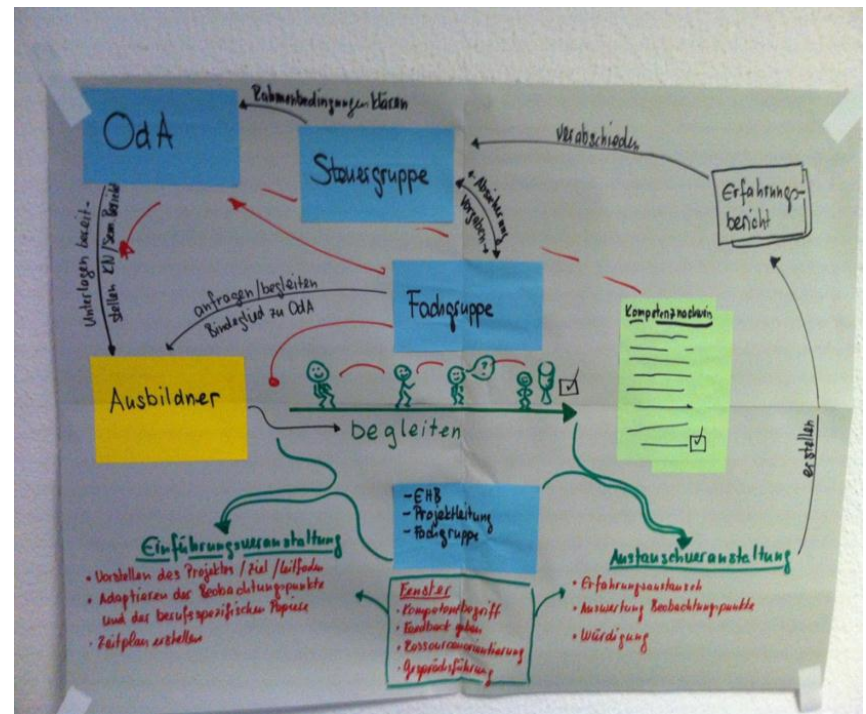 OdA
Rahmenbedingungen klären
Steuergruppe
verabschieden
Erfahrungs-
bericht
Absicherung
Vorgaben
Unterlagen bereit-
stellen KN/Sem Bericht
anfragen/begleiten
Bindeglied zu OdA
Fachgruppe
Kompetenznachweis
Ausbildner
?
begleiten
erstellen
- EHB
- Projektleitung
- Fachgruppe
Einführungsveranstaltung
• Vorstellen des Projektes / Ziel / Leitfaden
• Adaptieren der Beobachtungspunkte
und der berufsspezifischen Papiere
• Zeitplan erstellen
Fenster
• Kompetenzbegriff
• Feedback geben
• Ressourcenorientierung
• Gesprächsführung
Austauschveranstaltung
• Erfahrungsaustausch
• Auswertung Beobachtungspunkte
• Würdigung